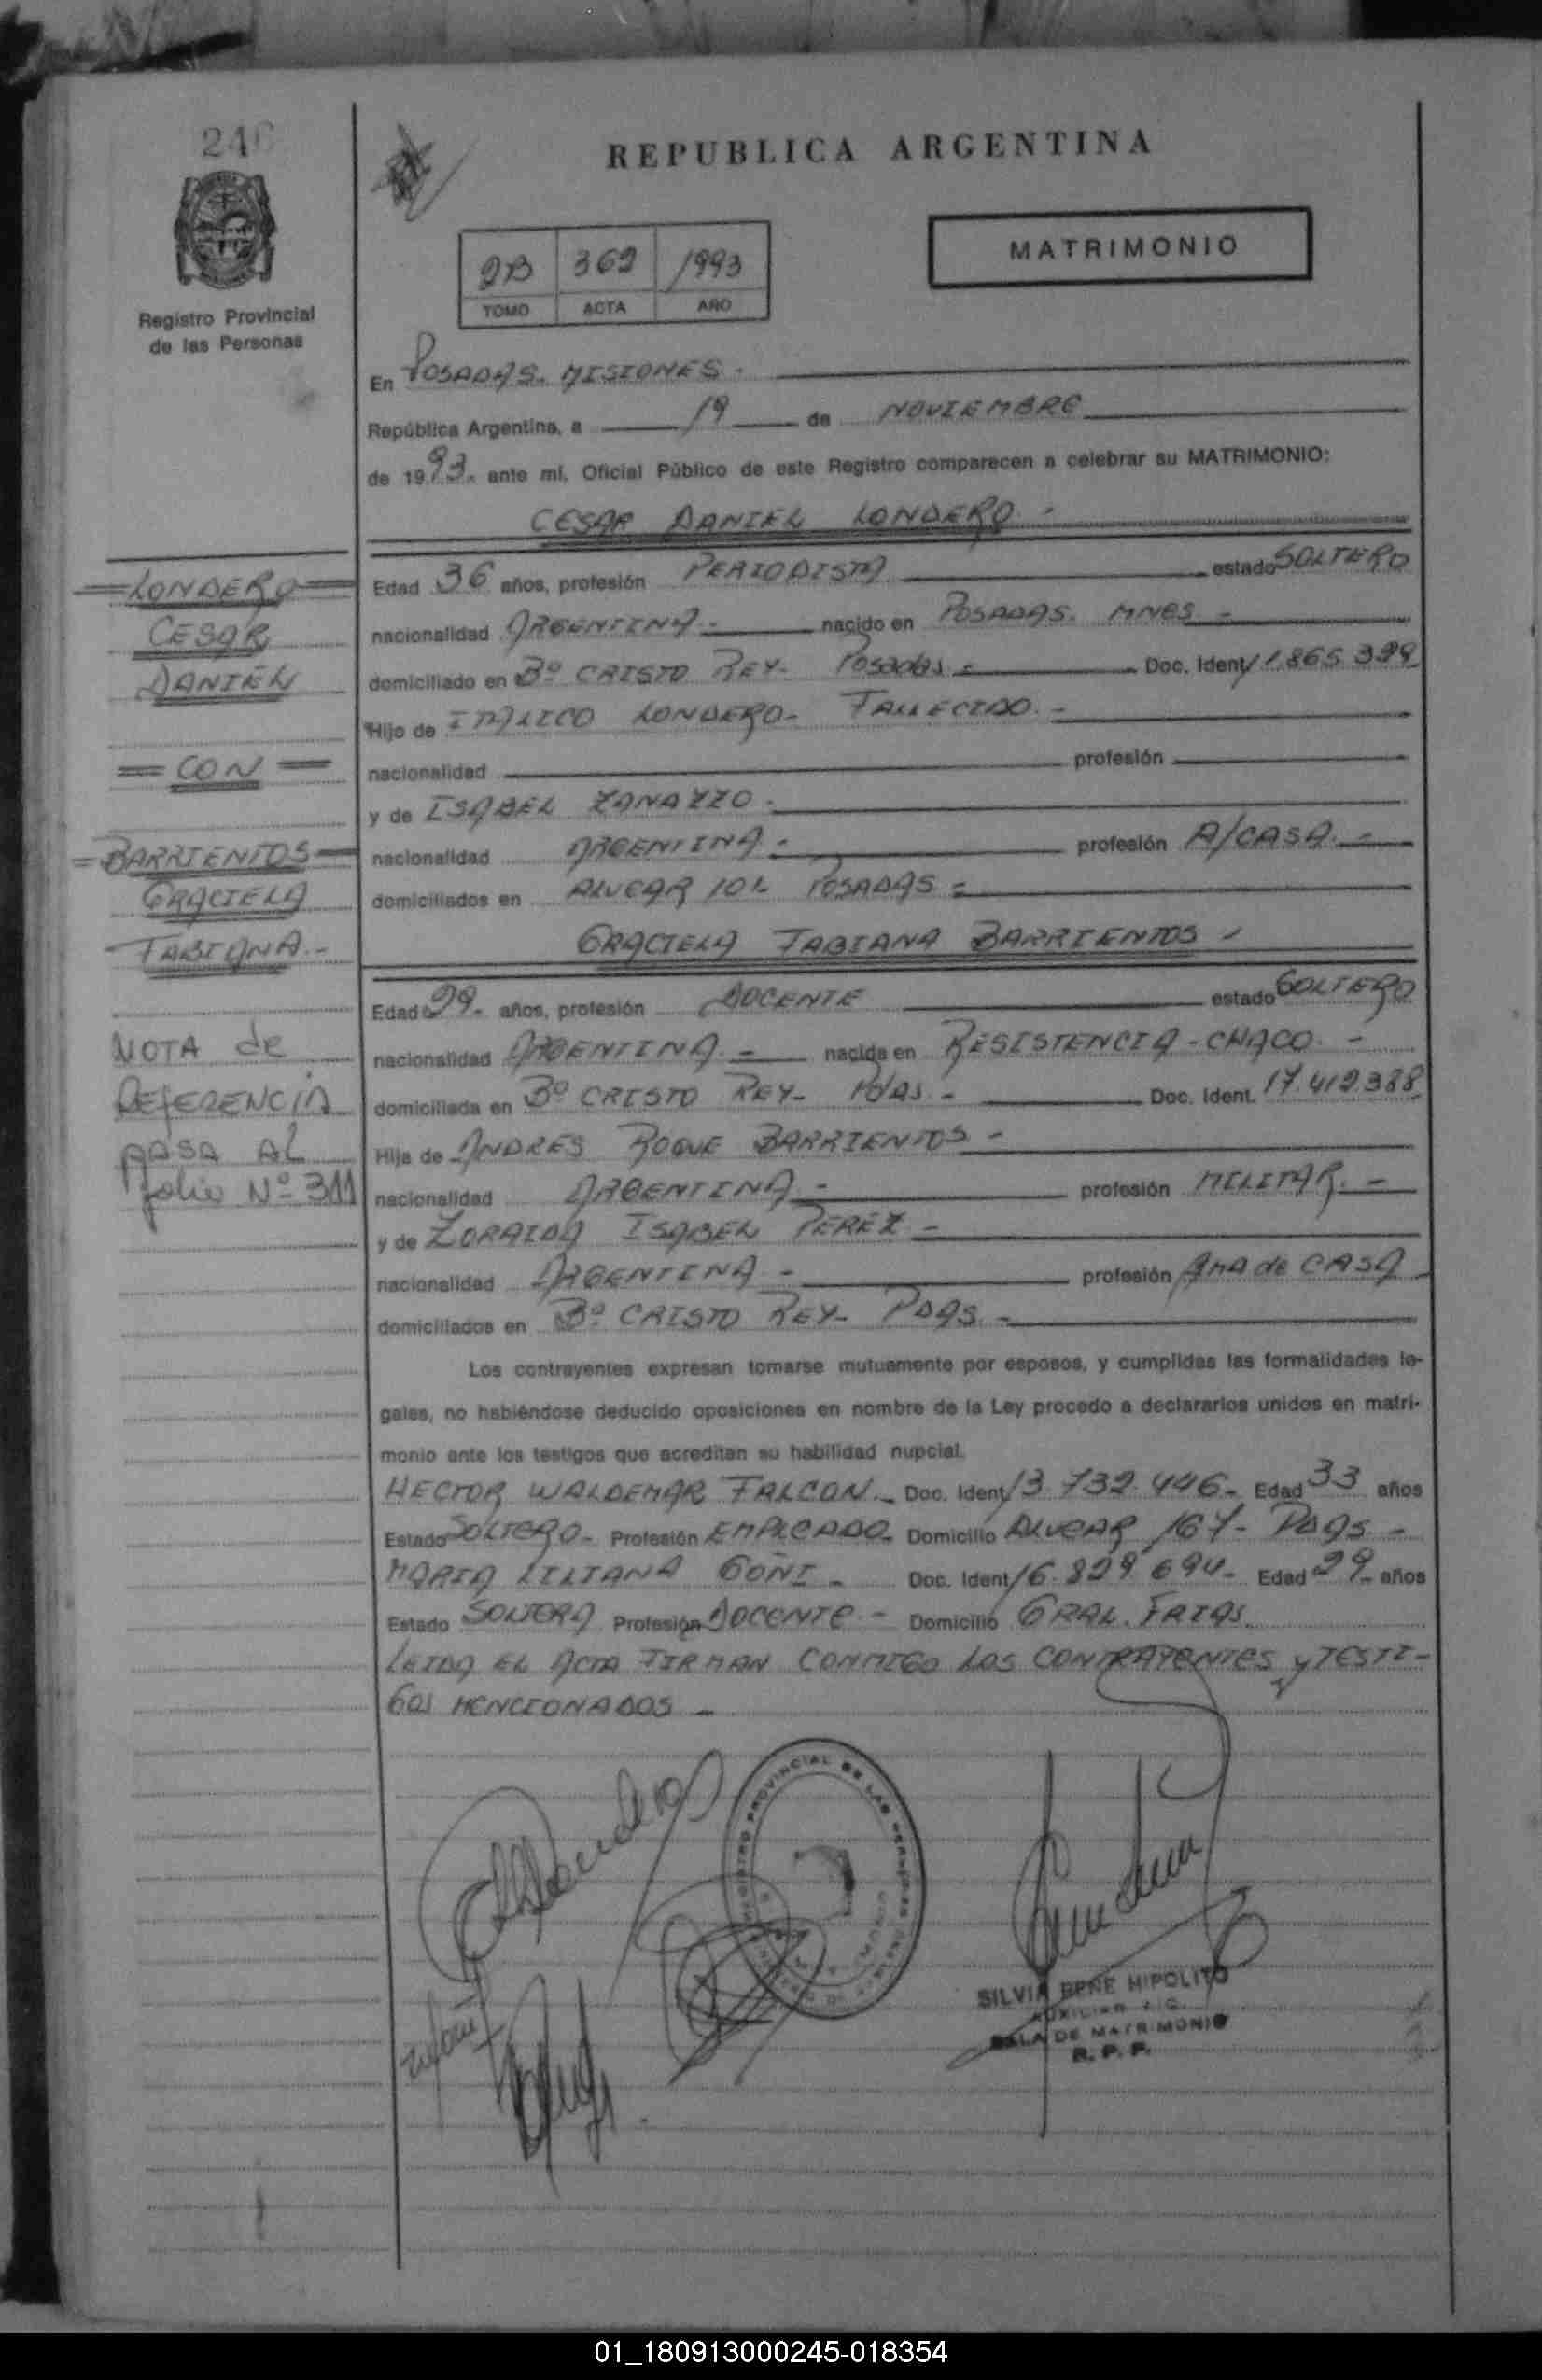 246
REPUBLICA ARGENTINA
2B 362 1993
TOMO ACTA AÑO
MATRIMONIO
Registro Provincial
de las Personas
En POSADAS. MISIONES.
República Argentina, a 19 de NOVIEMBRE
de 1993. ante mí, Oficial Público de este Registro comparecen a celebrar su MATRIMONIO:
CESAR DANIEL LONDERO
LONDERO
CESAR
DANIEL
CON
BARRIENTOS
GRACIELA
FABIANA.-
NOTA de
REFERENCIA
PASA AL
folio Nº 311
Edad 36 años, profesión PERIODISTA estado SOLTERO
nacionalidad ARGENTINA.- nacido en POSADAS. MNES -
domiciliado en Bº CRISTO REY- Posadas.- Doc. Ident.
Hijo de ITALICO LONDERO- FALLECIDO.-
nacionalidad profesión
y de ISABEL ZANAZZO.
nacionalidad ARGENTINA.- profesión A/CASA.-
domiciliados en ALVEAR POSADAS-
GRACIELA FABIANA BARRIENTOS
Edad 29. años, profesión DOCENTE estado SOLTERO
nacionalidad ARGENTINA.- nacida en RESISTENCIA-CHACO.-
domiciliada en Bº CRISTO REY- Pdas.- Doc. Ident. 17.412.388
Hija de ANDRES ROQUE BARRIENTOS-
nacionalidad ARGENTINA- profesión MILITAR.-
y de ZORAIDA ISABEL PEREZ-
nacionalidad ARGENTINA- profesión AMA de CASA
domiciliados en Bº CRISTO REY- PDAS.-
Los contrayentes expresan tomarse mutuamente por esposos, y cumplidas las formalidades le-
gales, no habiéndose deducido oposiciones en nombre de la Ley procedo a declararlos unidos en matri-
monio ante los testigos que acreditan su habilidad nupcial.
HECTOR WALDEMAR FALCON.- Doc. Ident. 13.732.446- Edad 33 años
Estado SOLTERO- Profesión EMPLEADO. Domicilio ALVEAR PDAS-
MARIA LILIANA GOÑI- Doc. Ident. 16.829.694- Edad 29- años
Estado SOLTERA Profesión DOCENTE- Domicilio GRAL. FRIAS.
LEIDA EL ACTA FIRMAN CONMIGO LOS CONTRAYENTES y TESTI-
GOS MENCIONADOS-
SILVIA RENE HIPOLITO
AUXILIAR
SALA DE MATRIMONIO
R. P. P.
01_180913000245-018354